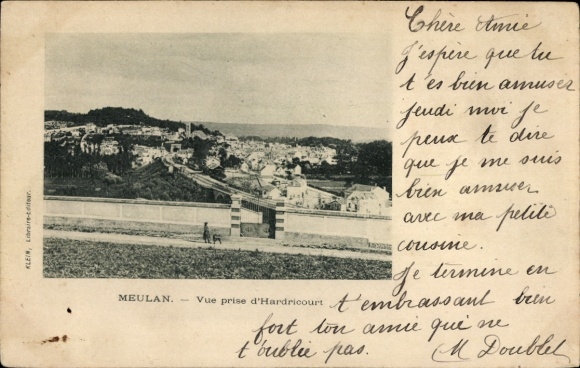 Chère Amie
J'espère que tu
t'es bien amuser
jeudi moi je
peux te dire
que je me suis
bien amuser
avec ma petite
cousine.
Je termine en
t'embrassant bien
fort ton amie qui ne
t'oublie pas.
M Doublet
MEULAN. — Vue prise d'Hardricourt
KLEIN, Libraire-Editeur.